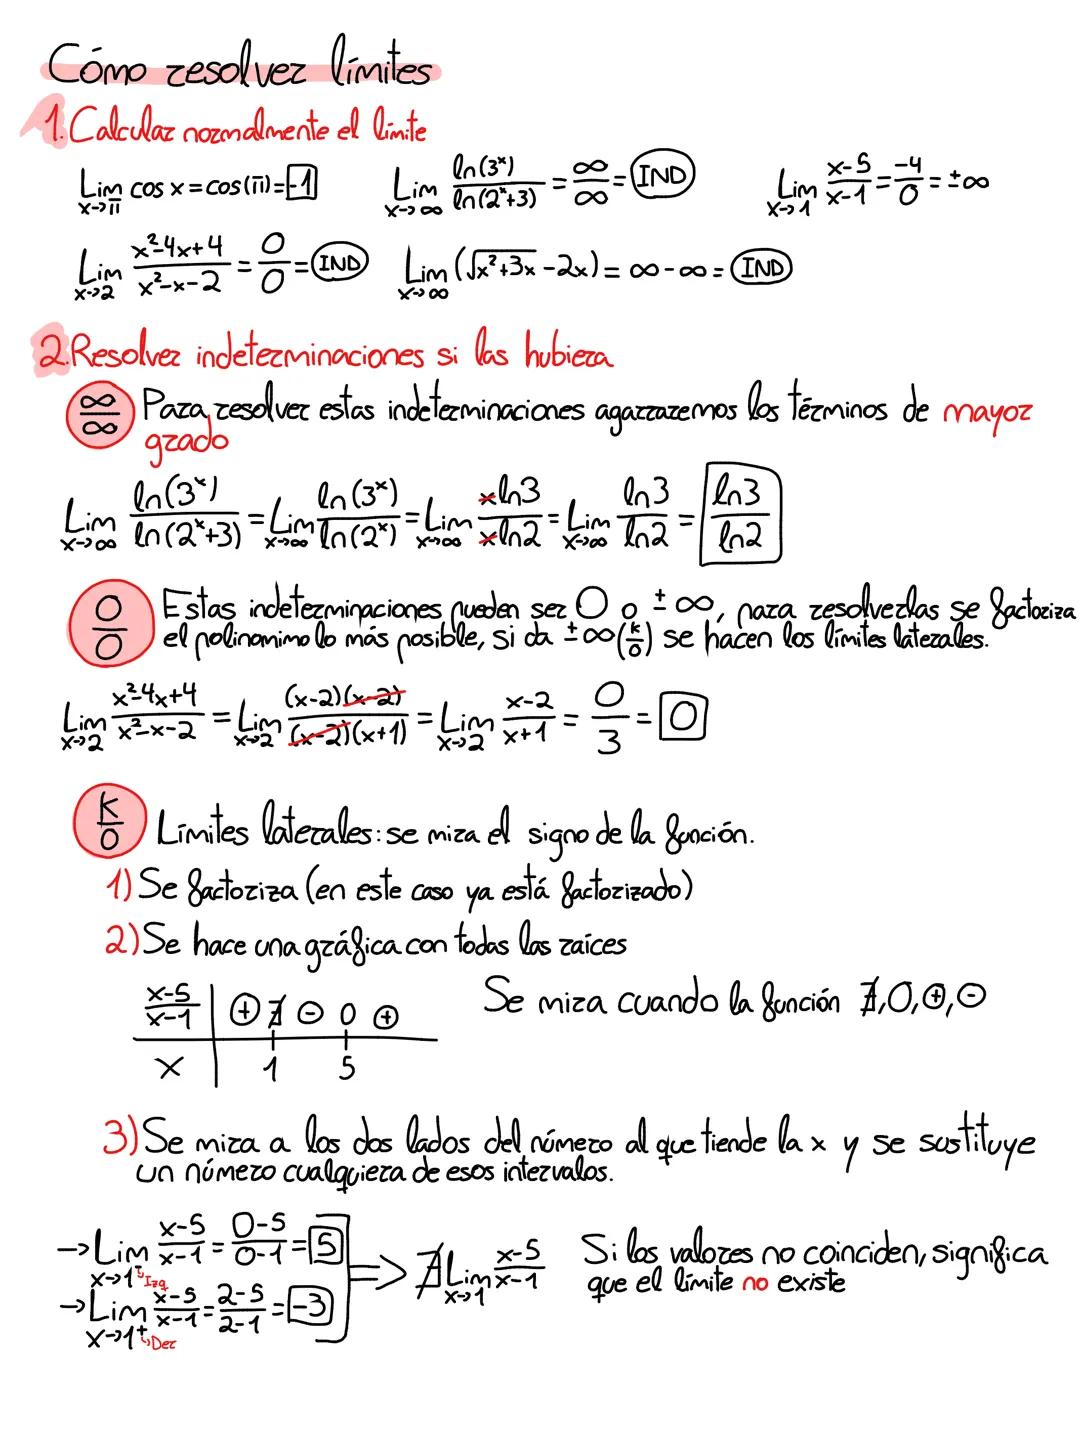 Cómo resolver límites
1. Calcular normalmente el límite
Lim x->π cos x = cos(π) = -1
Lim x->∞ ln(3^x)/ln(2^x+3) = ∞/∞ = IND
Lim x->1 x-5/x-1 = -4/0 = ±∞
Lim x->2 x²-4x+4/x²-x-2 = 0/0 = IND
Lim x->∞ (√x²+3x - 2x) = ∞-∞ = IND
2. Resolver indeterminaciones si las hubiera
∞/∞ Para resolver estas indeterminaciones agarraremos los términos de mayor
grado
Lim x->∞ ln(3^x)/ln(2^x+3) = Lim x->∞ ln(3^x)/ln(2^x) = Lim x->∞ xln3/xln2 = Lim x->∞ ln3/ln2 = ln3/ln2
0/0 Estas indeterminaciones pueden ser 0 o ±∞, para resolverlas se factoriza
el polinomimo lo más posible, si da ±∞(k/0) se hacen los límites laterales.
Lim x->2 x²-4x+4/x²-x-2 = Lim x->2 (x-2)(x-2)/(x-2)(x+1) = Lim x->2 x-2/x+1 = 0/3 = 0
K/0 Límites laterales: se mira el signo de la función.
1) Se factoriza (en este caso ya está factorizado)
2) Se hace una gráfica con todas las raíces
x-5/x-1 | ⊕ ∄ ⊖ 0 ⊕
x | 1 5
Se mira cuando la función ∄,0,⊕,⊖
3) Se mira a los dos lados del número al que tiende la x y se sustituye
un número cualquiera de esos intervalos.
->Lim x->1⁻ x-5/x-1 = 0-5/0-1 = 5
↳Izq
->Lim x->1⁺ x-5/x-1 = 2-5/2-1 = -3
↳Der
=> ∄ Lim x->1 x-5/x-1
Si los valores no coinciden, significa
que el límite no existe